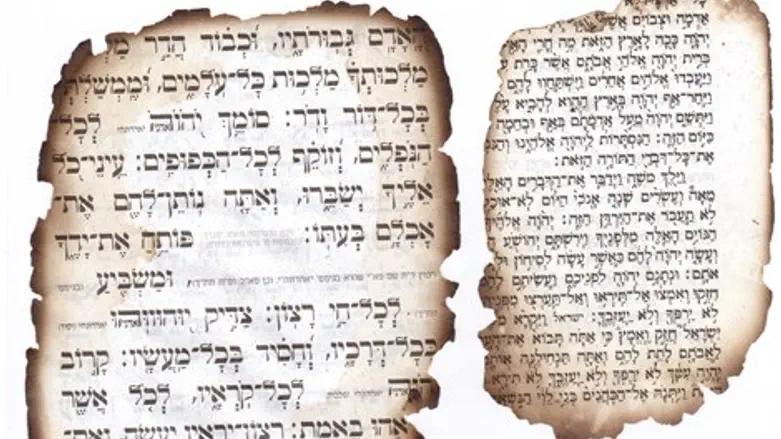 אַדְמָה וּצְבוֹיִם אֲשֶׁר
יְהוָה כָּכָה לָאָרֶץ הַזֹּאת מֶה חֳרִי הָאַף
בְּרִית יְהוָה אֱלֹהֵי אֲבֹתָם אֲשֶׁר כָּרַת
וַיַּעַבְדוּ אֱלֹהִים אֲחֵרִים וַיִּשְׁתַּחֲווּ לָהֶם
וַיִּחַר־אַף יְהוָה בָּאָרֶץ הַהִוא לְהָבִיא
וַיִּתְּשֵׁם יְהוָה מֵעַל אַדְמָתָם בְּאַף וּבְחֵמָה
כַּיּוֹם הַזֶּה: הַנִּסְתָּרֹת לַיהוָה אֱלֹהֵינוּ
אֶת־כָּל־דִּבְרֵי הַתּוֹרָה הַזֹּאת:
וַיֵּלֶךְ מֹשֶׁה וַיְדַבֵּר אֶת־הַדְּבָרִים הָאֵלֶּה
מֵאָה וְעֶשְׂרִים שָׁנָה אָנֹכִי הַיּוֹם לֹא־אוּכַל
לֹא תַעֲבֹר אֶת־הַיַּרְדֵּן הַזֶּה: יְהוָה אֱלֹהֶיךָ
הַגּוֹיִם הָאֵלֶּה מִלְּפָנֶיךָ וִירִשְׁתָּם יְהוֹשֻׁעַ
וְעָשָׂה יְהוָה לָהֶם כַּאֲשֶׁר עָשָׂה לְסִיחוֹן
אֹתָם: וּנְתָנָם יְהוָה לִפְנֵיכֶם וַעֲשִׂיתֶם לָהֶם
חִזְקוּ וְאִמְצוּ אַל־תִּירְאוּ וְאַל־תַּעַרְצוּ
לֹא יַרְפְּךָ וְלֹא יַעַזְבֶךָּ: ישראל וַיִּקְרָא
יִשְׂרָאֵל חֲזַק וֶאֱמָץ כִּי אַתָּה תָּבוֹא אֶת־
לַאֲבֹתָם לָתֵת לָהֶם וְאַתָּה תַּנְחִילֶנָּה
יִהְיֶה עִמָּךְ לֹא יַרְפְּךָ וְלֹא יַעַזְבֶךָּ לֹא תִירָא
וַיִּתְּנָהּ אֶל־הַכֹּהֲנִים בְּנֵי לֵוִי
הָאָדָם גְּבוּרֹתָיו, וּכְבוֹד הֲדַר
מַלְכוּתְךָ מַלְכוּת כָּל־עֹלָמִים, וּמֶמְשַׁלְתְּךָ
בְּכָל־דּוֹר וָדֹר: סוֹמֵךְ יְהוָה לְכָל־
הַנֹּפְלִים, וְזוֹקֵף לְכָל־הַכְּפוּפִים: עֵינֵי־כֹל
אֵלֶיךָ יְשַׂבֵּרוּ, וְאַתָּה נוֹתֵן־לָהֶם אֶת־
אָכְלָם בְּעִתּוֹ: פּוֹתֵחַ אֶת־יָדֶךָ
וּמַשְׂבִּיעַ
לְכָל־חַי רָצוֹן: צַדִּיק
בְּכָל־דְּרָכָיו, וְחָסִיד בְּכָל־מַעֲשָׂיו: קָרוֹב
לְכָל־קֹרְאָיו, לְכֹל אֲשֶׁר